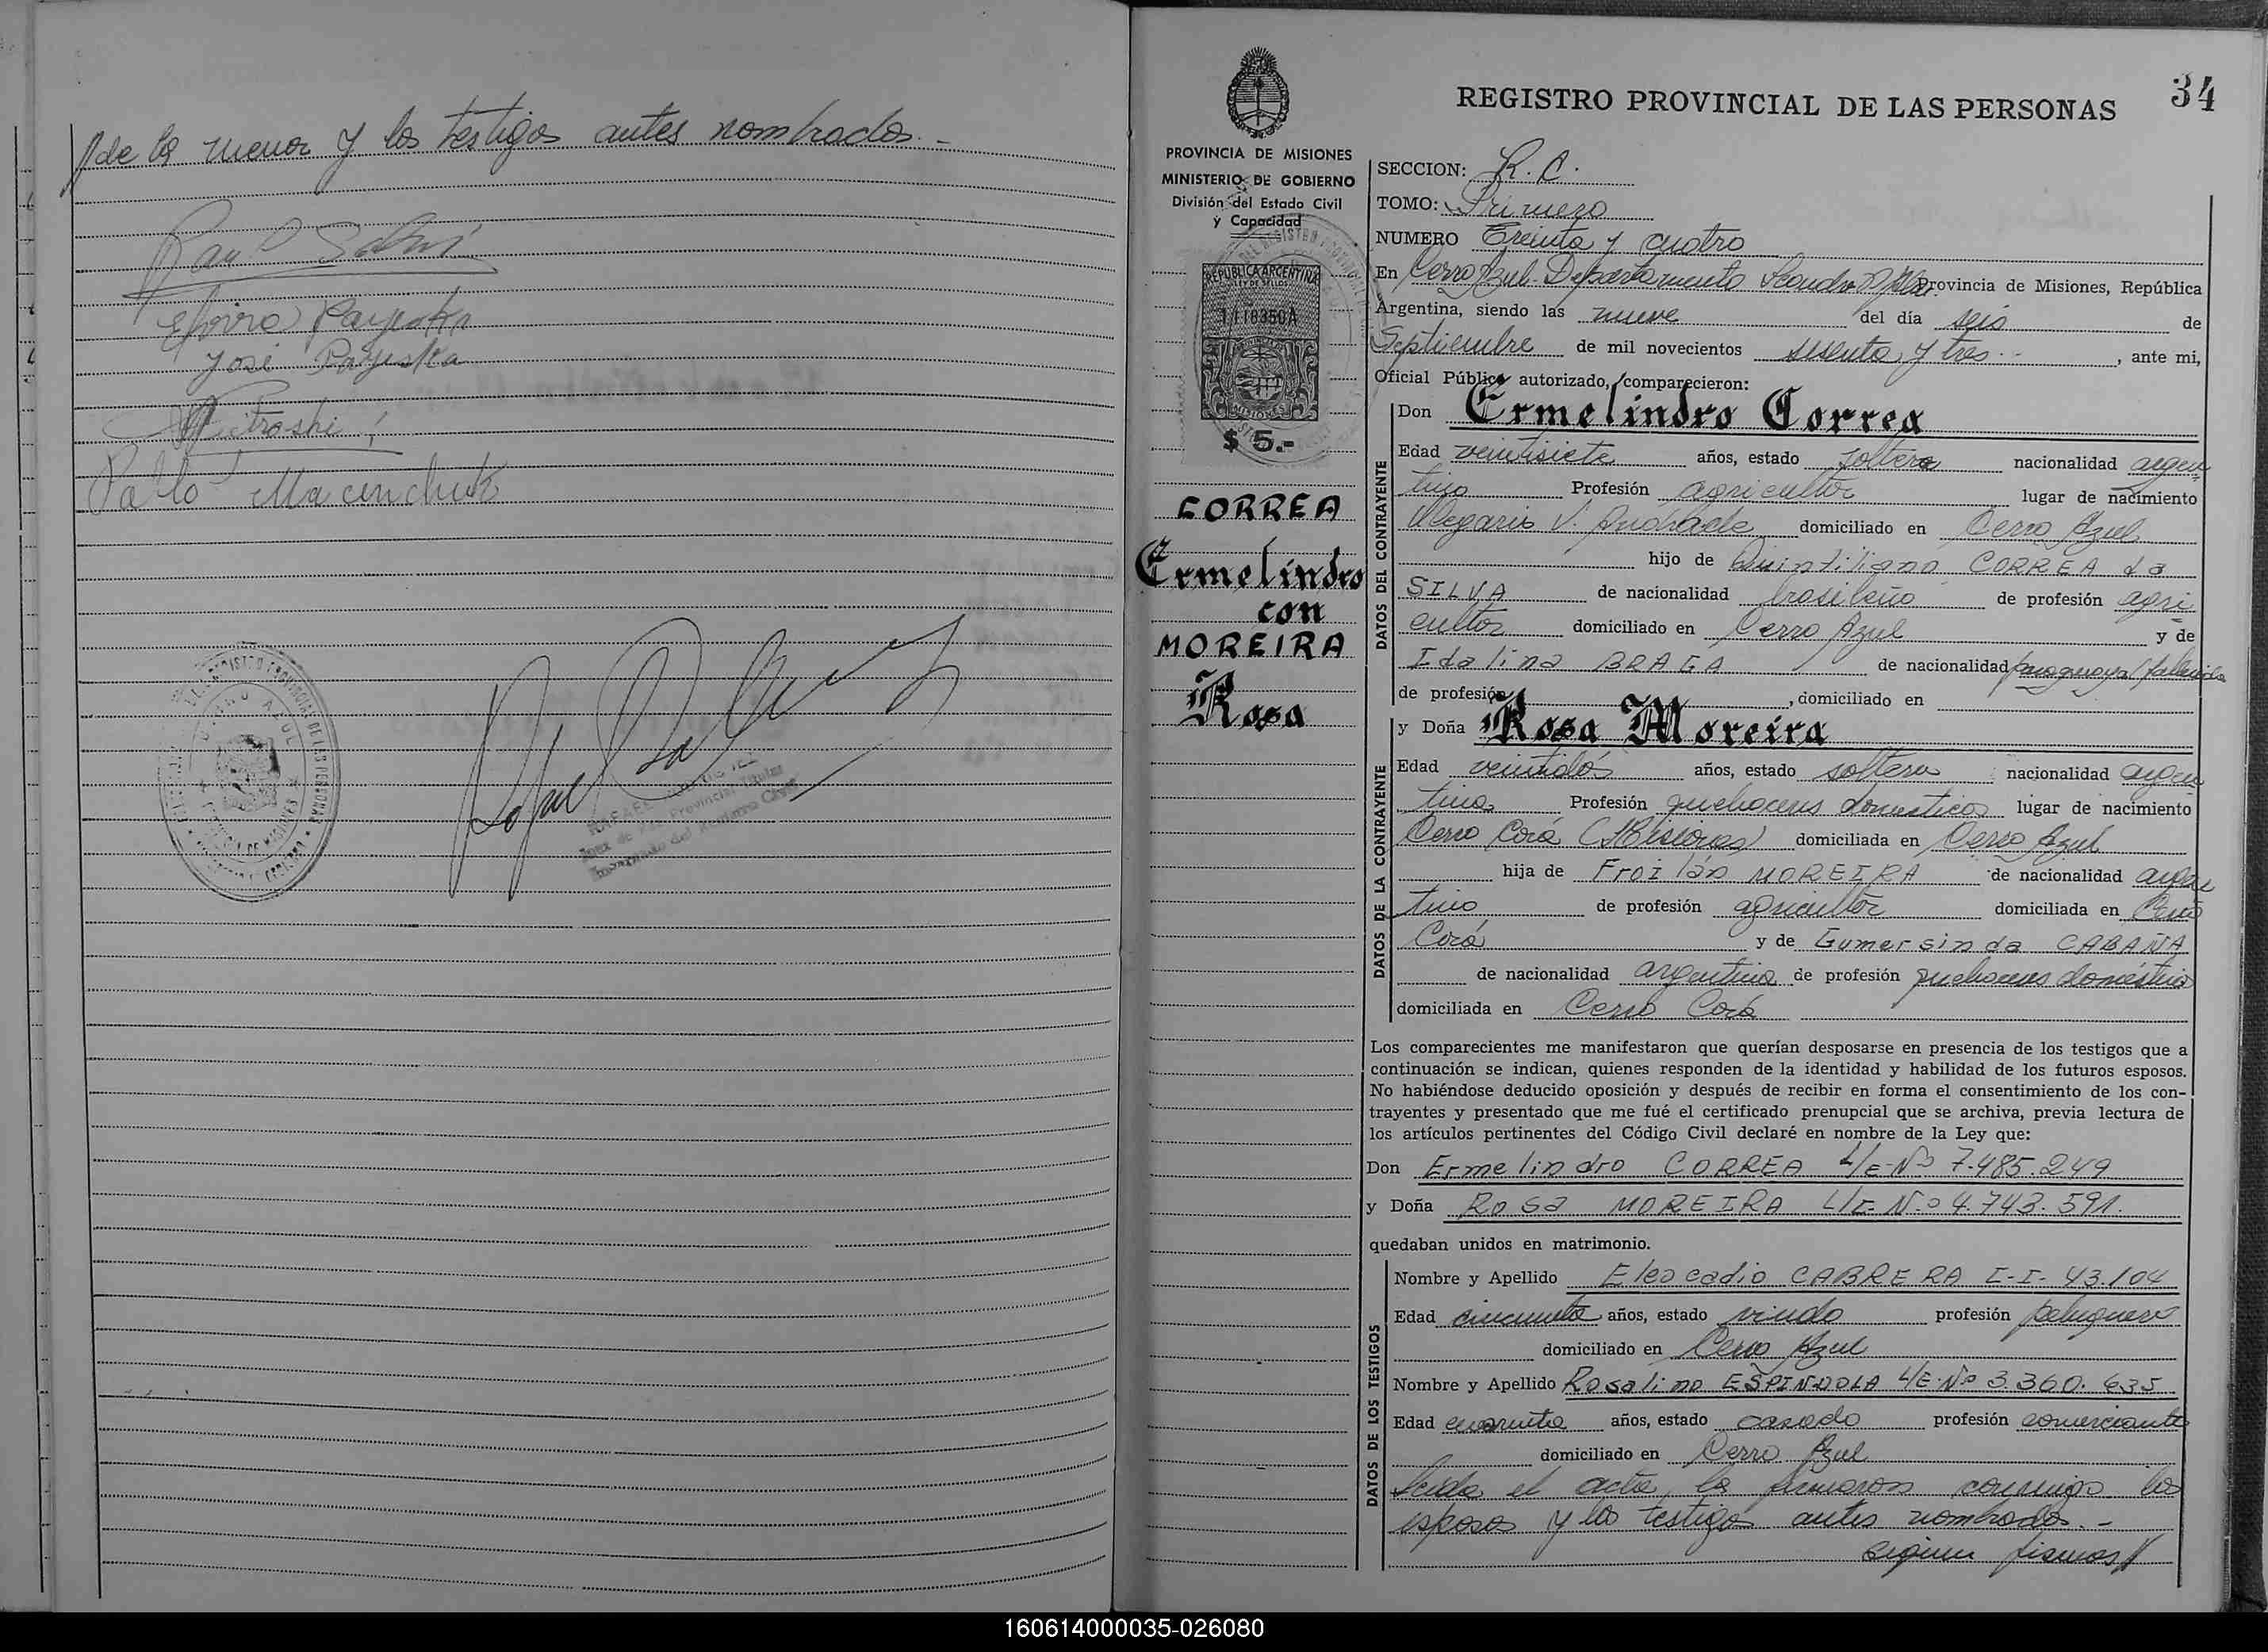 //de la menor y los testigos antes nombrados.-
Raul
Elvira Payeska
José Payeska
Pablo
34
REGISTRO PROVINCIAL DE LAS PERSONAS
PROVINCIA DE MISIONES
MINISTERIO DE GOBIERNO
División del Estado Civil
y Capacidad
REPUBLICA ARGENTINA
LEY DE SELLOS
MISIONES
$ 5.-
CORREA
Ermelindro
con
MOREIRA
Rosa
SECCION: R. C.
TOMO: Primero
NUMERO Treinta y cuatro
En Cerro Azul. Departamento Leandro N. Alem Provincia de Misiones, República
Argentina, siendo las nueve del día seis de
Septiembre de mil novecientos sesenta y tres.-, ante mi,
Oficial Público autorizado, comparecieron:
DATOS DEL CONTRAYENTE
Don Ermelindro Correa
Edad veintisiete años, estado soltero nacionalidad argen
tino Profesión agricultor lugar de nacimiento
Olegario V. Andrade domiciliado en Cerro Azul
hijo de Quintiliano CORREA da
SILVA de nacionalidad brasileño de profesión agri
cultor domiciliado en Cerro Azul y de
Idalina BRAGA de nacionalidad paraguaya/fallecida
de profesión , domiciliado en
DATOS DE LA CONTRAYENTE
y Doña Rosa Moreira
Edad veintidós años, estado soltera nacionalidad argen
tina Profesión quehaceres domésticos lugar de nacimiento
Cerro Corá (Misiones) domiciliada en Cerro Azul
hija de Froilán MOREIRA de nacionalidad argen
tino de profesión agricultor domiciliada en Cerro
Corá y de Gumersinda CABAÑA
de nacionalidad argentina de profesión quehaceres domésticos
domiciliada en Cerro Corá
Los comparecientes me manifestaron que querían desposarse en presencia de los testigos que a
continuación se indican, quienes responden de la identidad y habilidad de los futuros esposos.
No habiéndose deducido oposición y después de recibir en forma el consentimiento de los con-
trayentes y presentado que me fué el certificado prenupcial que se archiva, previa lectura de
los artículos pertinentes del Código Civil declaré en nombre de la Ley que:
Don Ermelindro CORREA L/E-Nº 7.485.249
y Doña Rosa MOREIRA L/C Nº 4.743.591.
quedaban unidos en matrimonio.
DATOS DE LOS TESTIGOS
Nombre y Apellido Eleocadio CABRERA C-I- 43.104
Edad cincuenta años, estado viudo profesión peluquero
domiciliado en Cerro Azul
Nombre y Apellido Rosalino ESPINDOLA L/E-Nº 3.360.635
Edad cuarenta años, estado casado profesión comerciante
domiciliado en Cerro Azul
Leida el acta, la firmaron conmigo los
esposos y los testigos antes nombrados.-
siguen firmas//
160614000035-026080